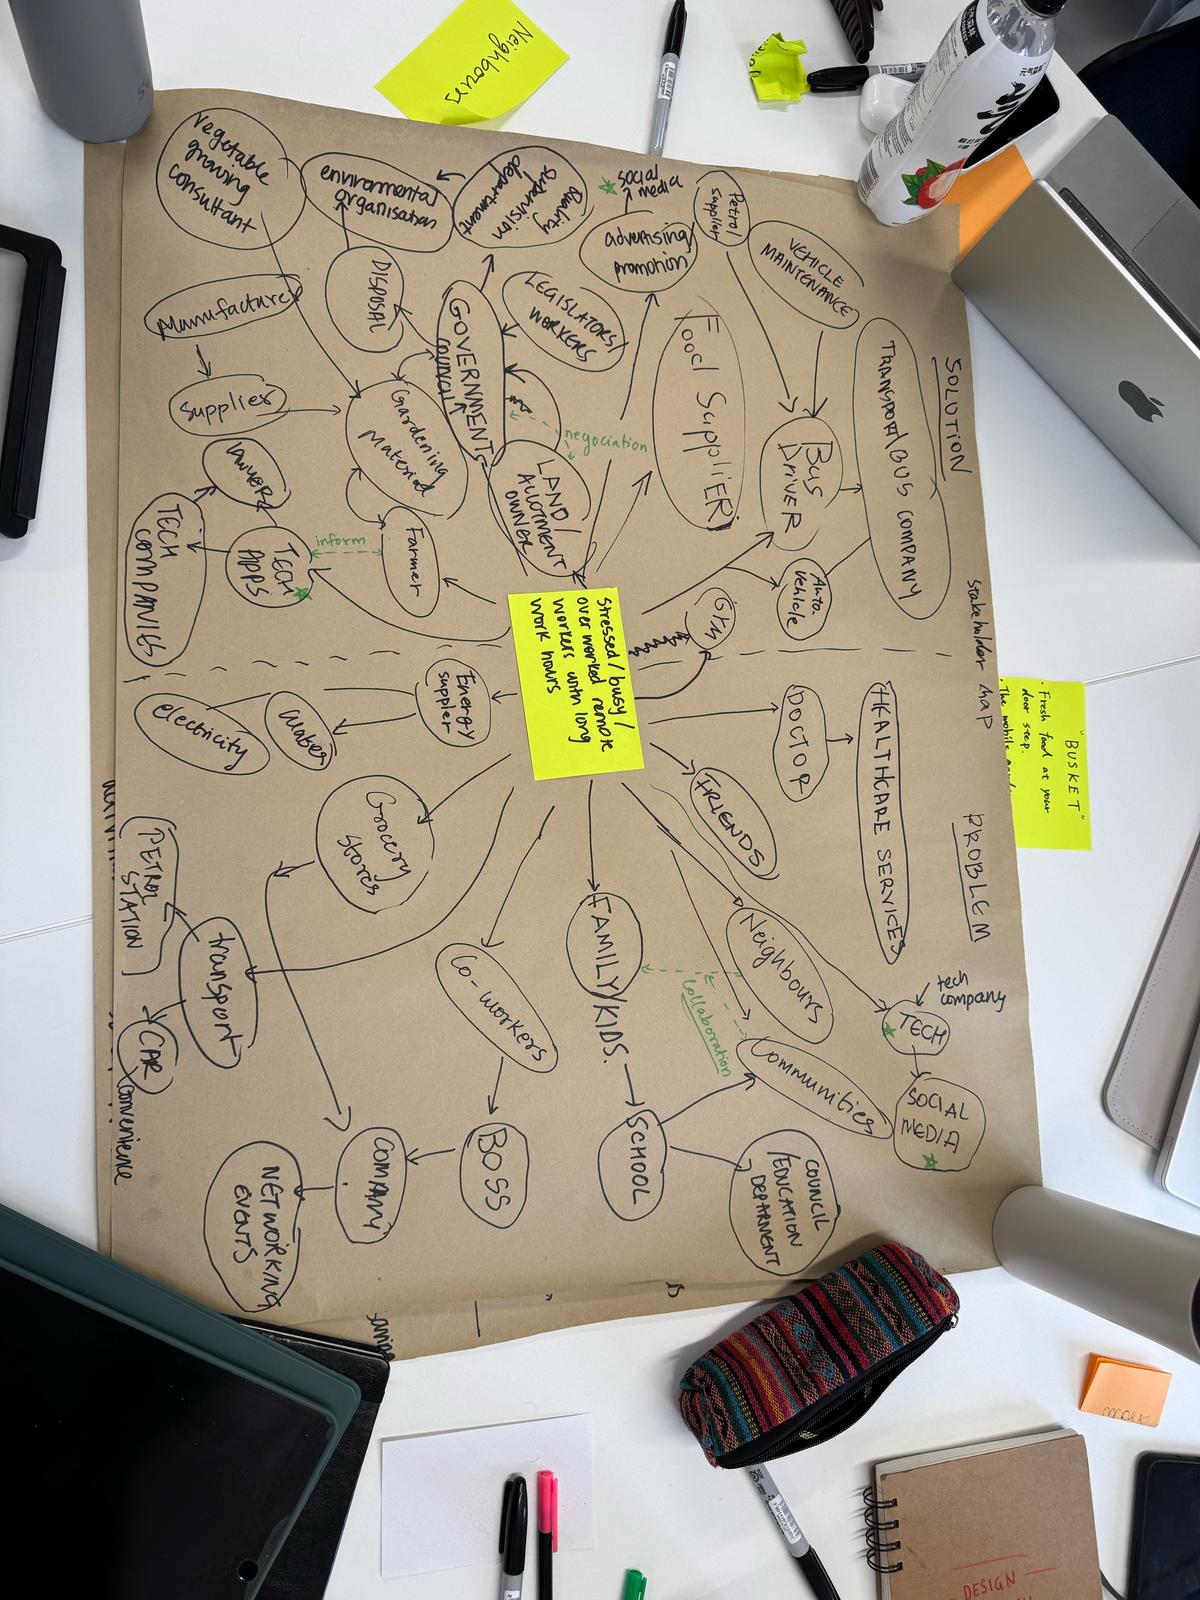 Neighbours
vegetable
growing
consultant
environmental
organisation
Quality
supervision
department
social
media
advertising
promotion
Petrol
supplier
VEHICLE
MAINTENANCE
Manufacture
DISPOSAL
GOVERNMENT
COUNCIL
LEGISLATORS/
WORKERS
Food SuppliER
TRANSPORT/BUS COMPANY
SOLUTION
supplies
Gardening
Material
negociation
LAND/
ALLOTMENT
OWNER
BUS
DRIVER
lawyer
TECH
COMPANIES
TECH
APPS
inform
Farmer
Auto
vehicle
GYM
stakeholder map
stressed/busy/
over worked remote
workers with long
work hours
electricity
water
Energy
supplier
DOCTOR
HEALTHCARE SERVICES
FRIENDS
"BUSKET"
· Fresh food at your
door step.
PROBLEM
Grocery
stores
PETROL
STATION
transport
CAR
convenience
Co-workers
FAMILY/KIDS.
Neighbours
collaboration
Communities
tech
company
TECH
SOCIAL
MEDIA
NETWORKING
EVENTS
COMPANY
BOSS
SCHOOL
COUNCIL
/EDUCATION
DEPARTMENT
元气森林
DESIGN